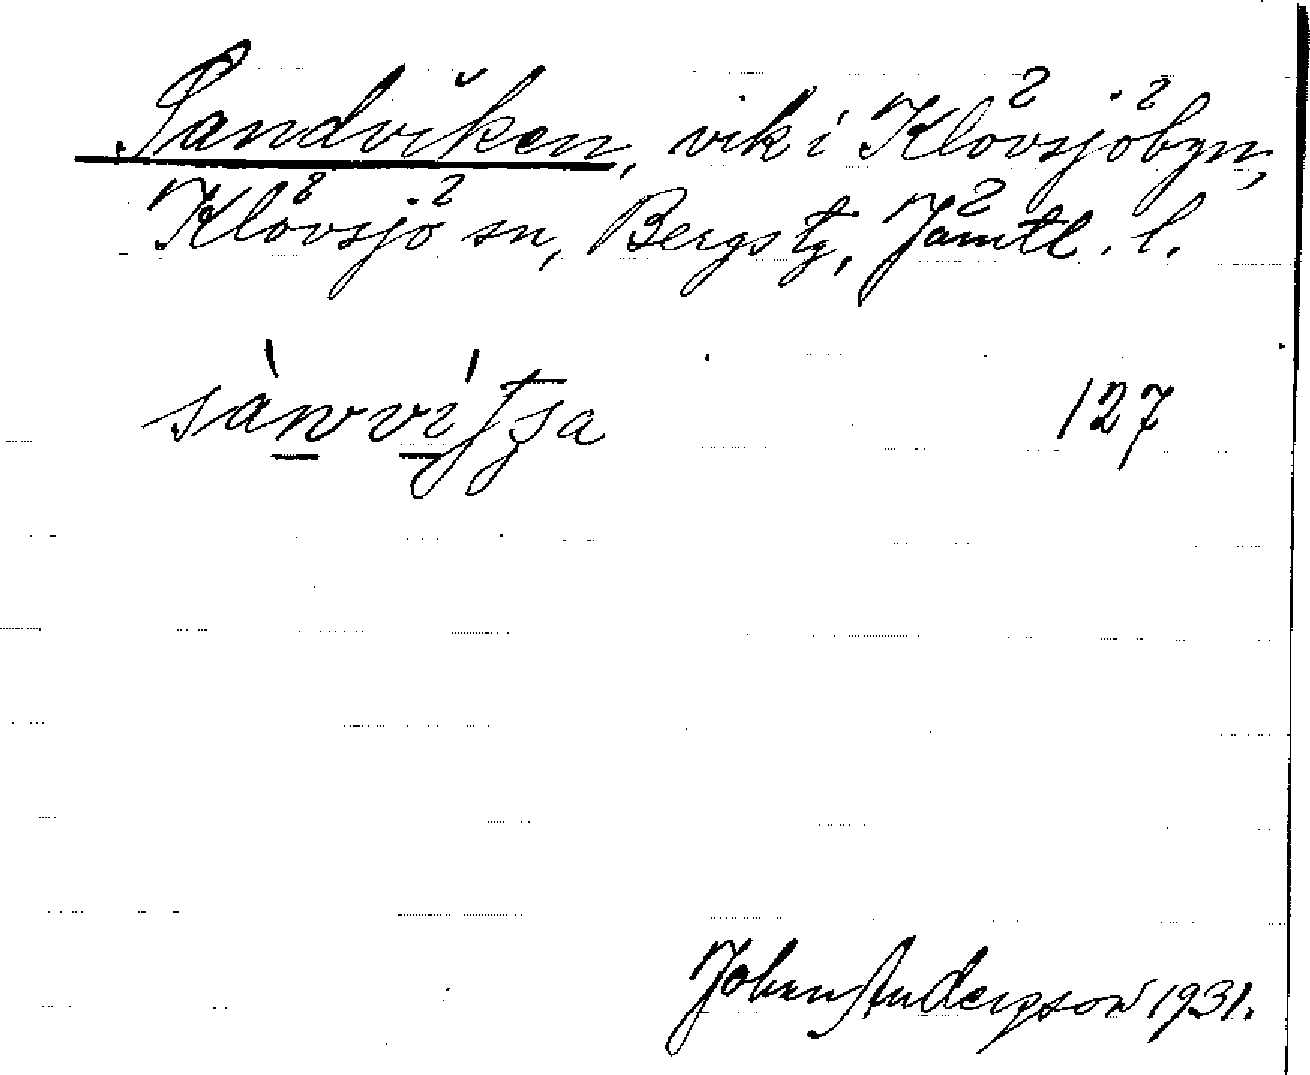 Sandviken, vik i Klövsjöbyn,
Klövsjö sn, Bergs tg, Jämtl. l.
127
Johan Anderson 1931.